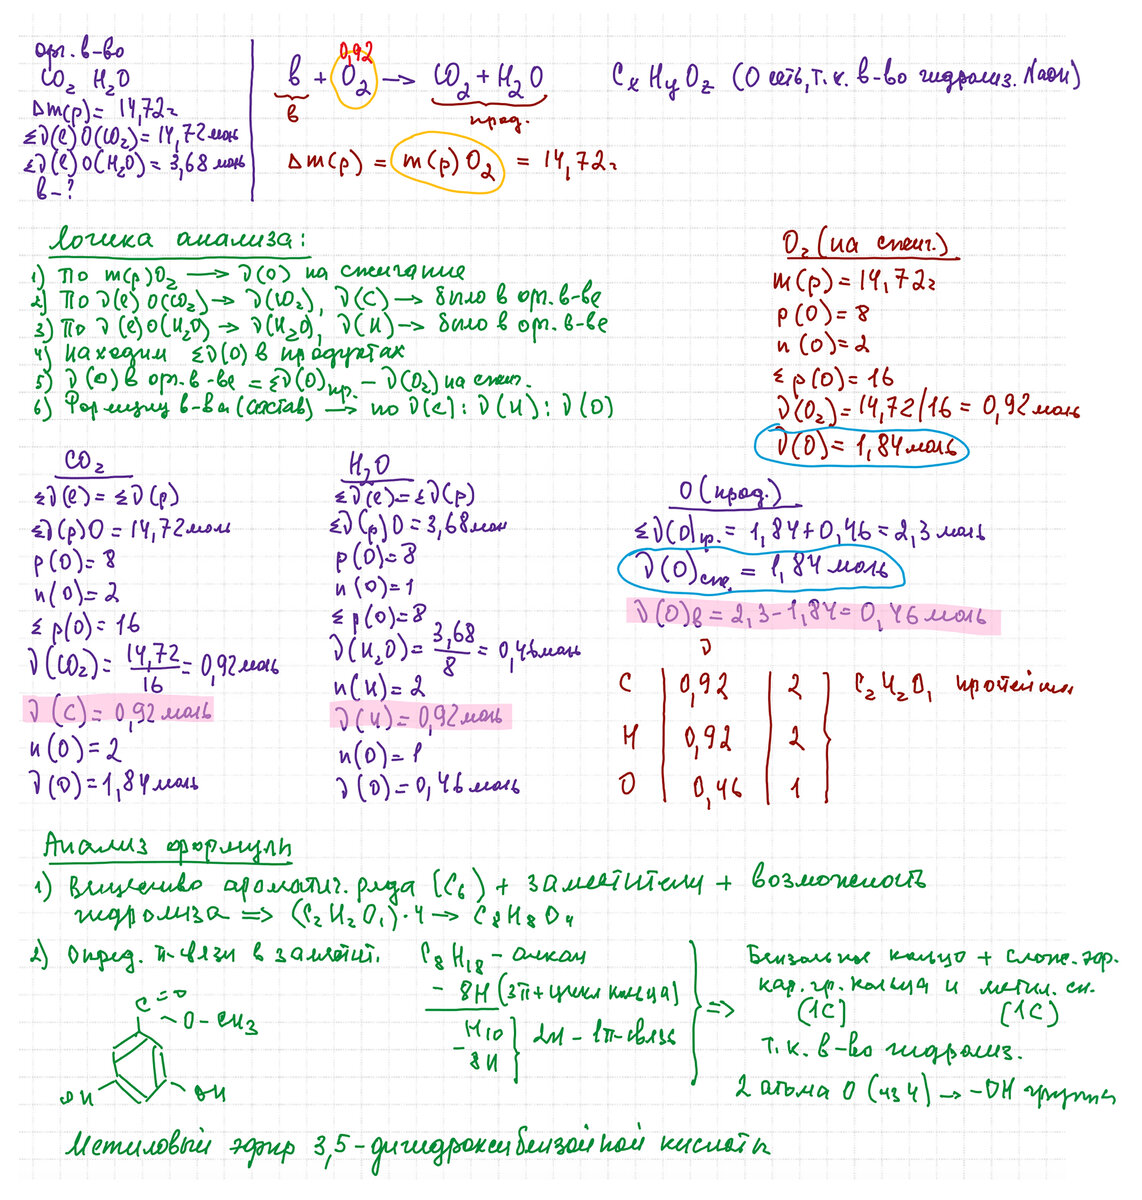 орг. в-во
CO2 H2O
Δm(p) = 14,72г
Σν(e)O(CO2) = 14,72 моль
Σν(e)O(H2O) = 3,68 моль
в - ?
0,92
в + O2 → CO2 + H2O
в
прод.
CxHyOz (O есть, т.к. в-во гидролиз. NaOH)
Δm(p) = m(p)O2 = 14,72г
Логика анализа:
1) По m(p)O2 → ν(O) на сжигание
2) По ν(e)O(CO2) → ν(CO2), ν(C) → было в орг. в-ве
3) По ν(e)O(H2O) → ν(H2O), ν(H) → было в орг. в-ве
4) Находим Σν(O) в продуктах
5) ν(O) в орг. в-ве = Σν(O)пр. - ν(O2) на сжиг.
6) Формулу в-ва (состав) → по ν(C) : ν(H) : ν(O)
O2 (на сжиг.)
m(p) = 14,72г
p(O) = 8
n(O) = 2
Σp(O) = 16
ν(O2) = 14,72/16 = 0,92 моль
ν(O) = 1,84 моль
CO2
Σν(e) = Σν(p)
Σν(p)O = 14,72 моль
p(O) = 8
n(O) = 2
Σp(O) = 16
ν(CO2) = 14,72/16 = 0,92 моль
ν(C) = 0,92 моль
n(O) = 2
ν(O) = 1,84 моль
H2O
Σν(e) = Σν(p)
Σν(p)O = 3,68 моль
p(O) = 8
n(O) = 1
Σp(O) = 8
ν(H2O) = 3,68/8 = 0,46 моль
n(H) = 2
ν(H) = 0,92 моль
n(O) = 1
ν(O) = 0,46 моль
O (прод.)
Σν(O)пр. = 1,84 + 0,46 = 2,3 моль
ν(O)сжиг. = 1,84 моль
ν(O)в = 2,3 - 1,84 = 0,46 моль
ν
C | 0,92 | 2
H | 0,92 | 2
O | 0,46 | 1
C2H2O1
Анализ формулы
1) Вещество ароматич. ряда (C6) + заместители + возможность
гидролиза => (C2H2O1)·4 → C8H8O4
2) Опред. π-связи в заместит.
C8H18 - алкан
- 8H (3π + цикл кольца)
H10
- 8H
2H - 1π-связь
=>
Бензольное кольцо + слож. эфр.
кар. гр. кольца и метил. сп.
(1C) (1C)
т.к. в-во гидролиз.
2 атома O (из 4) → -OH группы
C=O
O-CH3
OH
OH
Метиловый эфир 3,5-дигидроксибензойной кислоты